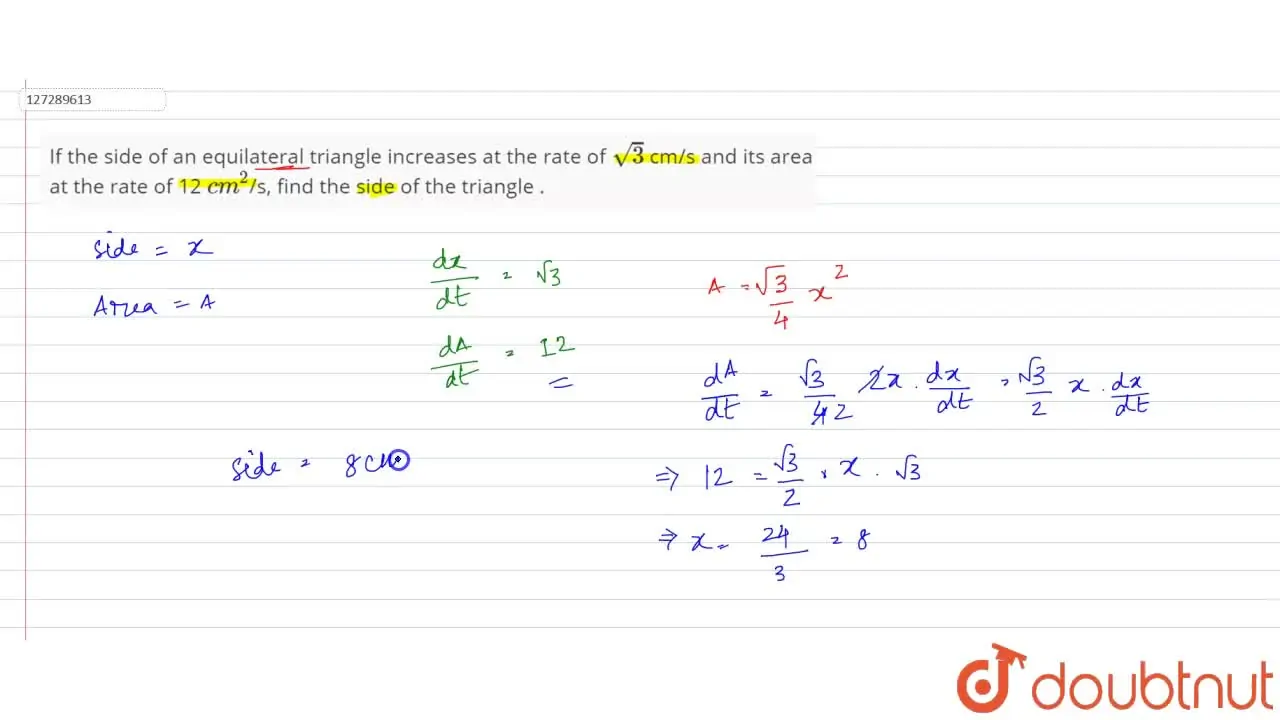 127289613
If the side of an equilateral triangle increases at the rate of √3 cm/s and its area
at the rate of 12 cm²/s, find the side of the triangle .
side = x
Area = A
dx/dt = √3
dA/dt = 12
A = √3/4 x²
dA/dt = √3/42 2x . dx/dt = √3/2 x . dx/dt
⇒ 12 = √3/2 . x . √3
⇒ x = 24/3 = 8
side = 8cm
doubtnut